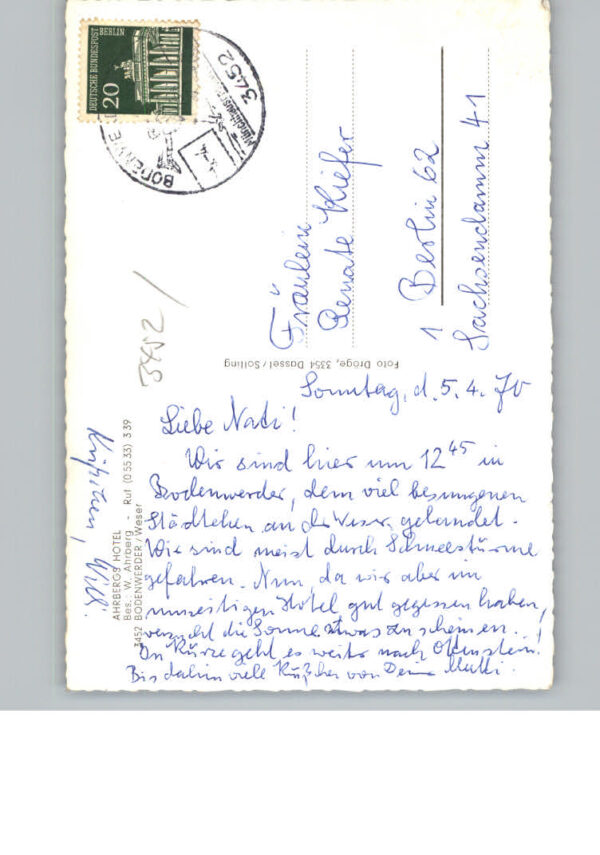 DEUTSCHE BUNDESPOST
BERLIN
20
3452
Fräulein
Renate Kiefer
1 Berlin 62
Sachsendamm 41
3452 /
Foto Dröge, 3354 Dassel/Solling
AHRBERGS HOTEL
Bes.: W. Ahrberg - Ruf (0 55 33) 3 39
3452 BODENWERDER/Weser
Sonntag, d. 5.4.70
Liebe Nati!
Wir sind hier um 12 45 in
Bodenwerder, dem viel besungenen
Städtchen an der Weser, gelandet.
Wir sind meist durch Schneestürme
gefahren. Nun, da wir aber im
Hotel gut gegessen haben,
versucht die Sonne etwas zu scheinen.
In Kürze geht es weiter nach
Bis dahin viele Küßchen von Deine Mutti.
Willi